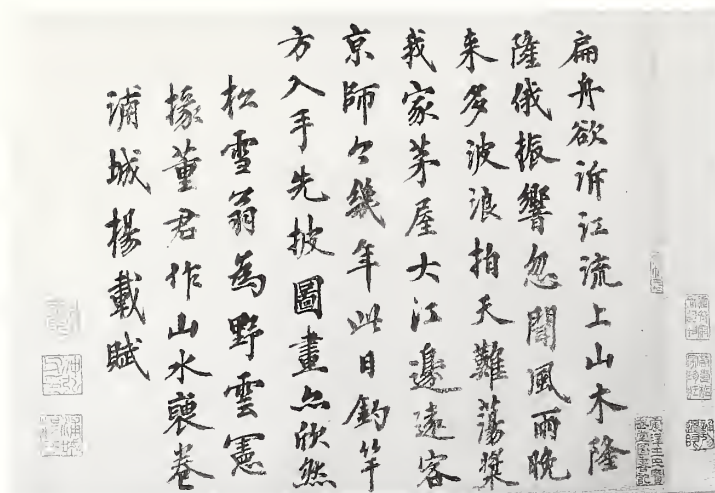 扁舟欲泝江流上山木隆
隆俄振響忽聞風雨晚
来多波浪拍天難蕩槳
我家茅屋大江邊遠客
京師今幾年此日釣竿
方入手先披圖畫亦欣然
松雪翁為野雲憲
掾董君作山水褱卷
浦城楊載賦